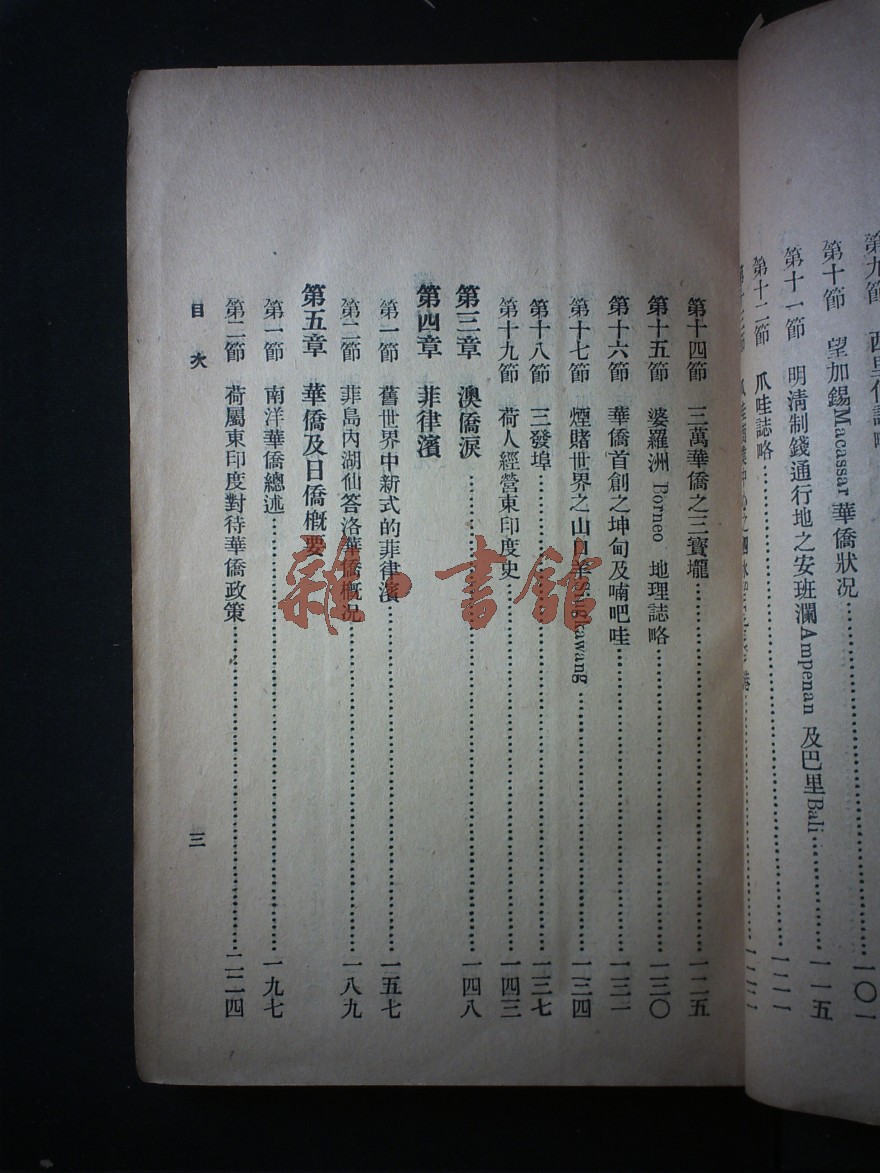 第十節　望加錫Macassar 華僑狀況……一〇一
第十一節　明清制錢通行地之安班瀾Ampenan 及巴里Bali……一一五
第十二節　爪哇誌略……一二一
第十四節　三萬華僑之三寶壠……一二五
第十五節　婆羅洲 Borneo 地理誌略……一三〇
第十六節　華僑首創之坤甸及喃吧哇……一三一
第十七節　煙賭世界之山口羊Singkawang……一三四
第十八節　三發埠……一三七
第十九節　荷人經營東印度史……一四三
第三章　澳僑淚……一四八
第四章　菲律濱
第一節　舊世界中新式的菲律濱……一五七
第二節　菲島內湖仙答洛華僑概況……一八九
第五章　華僑及日僑概要
第一節　南洋華僑總述……一九七
第二節　荷屬東印度對待華僑政策……二二四
目次
三
雜·書館